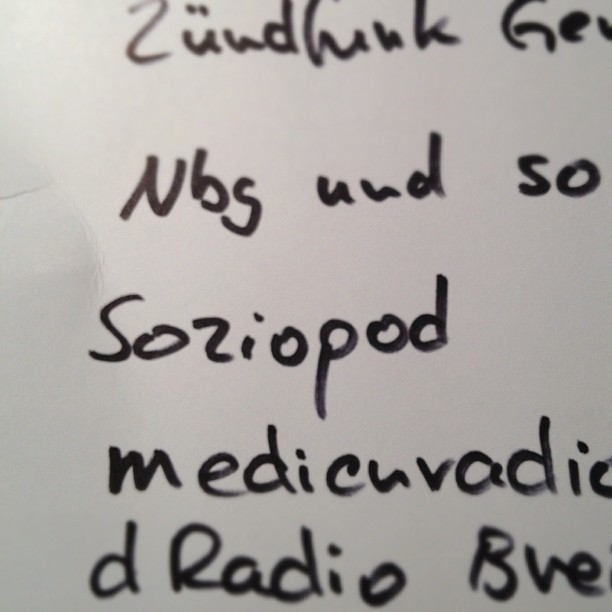 Zündfunk Gen
Nbg und so
Soziopod
medienradio
dRadio Brei